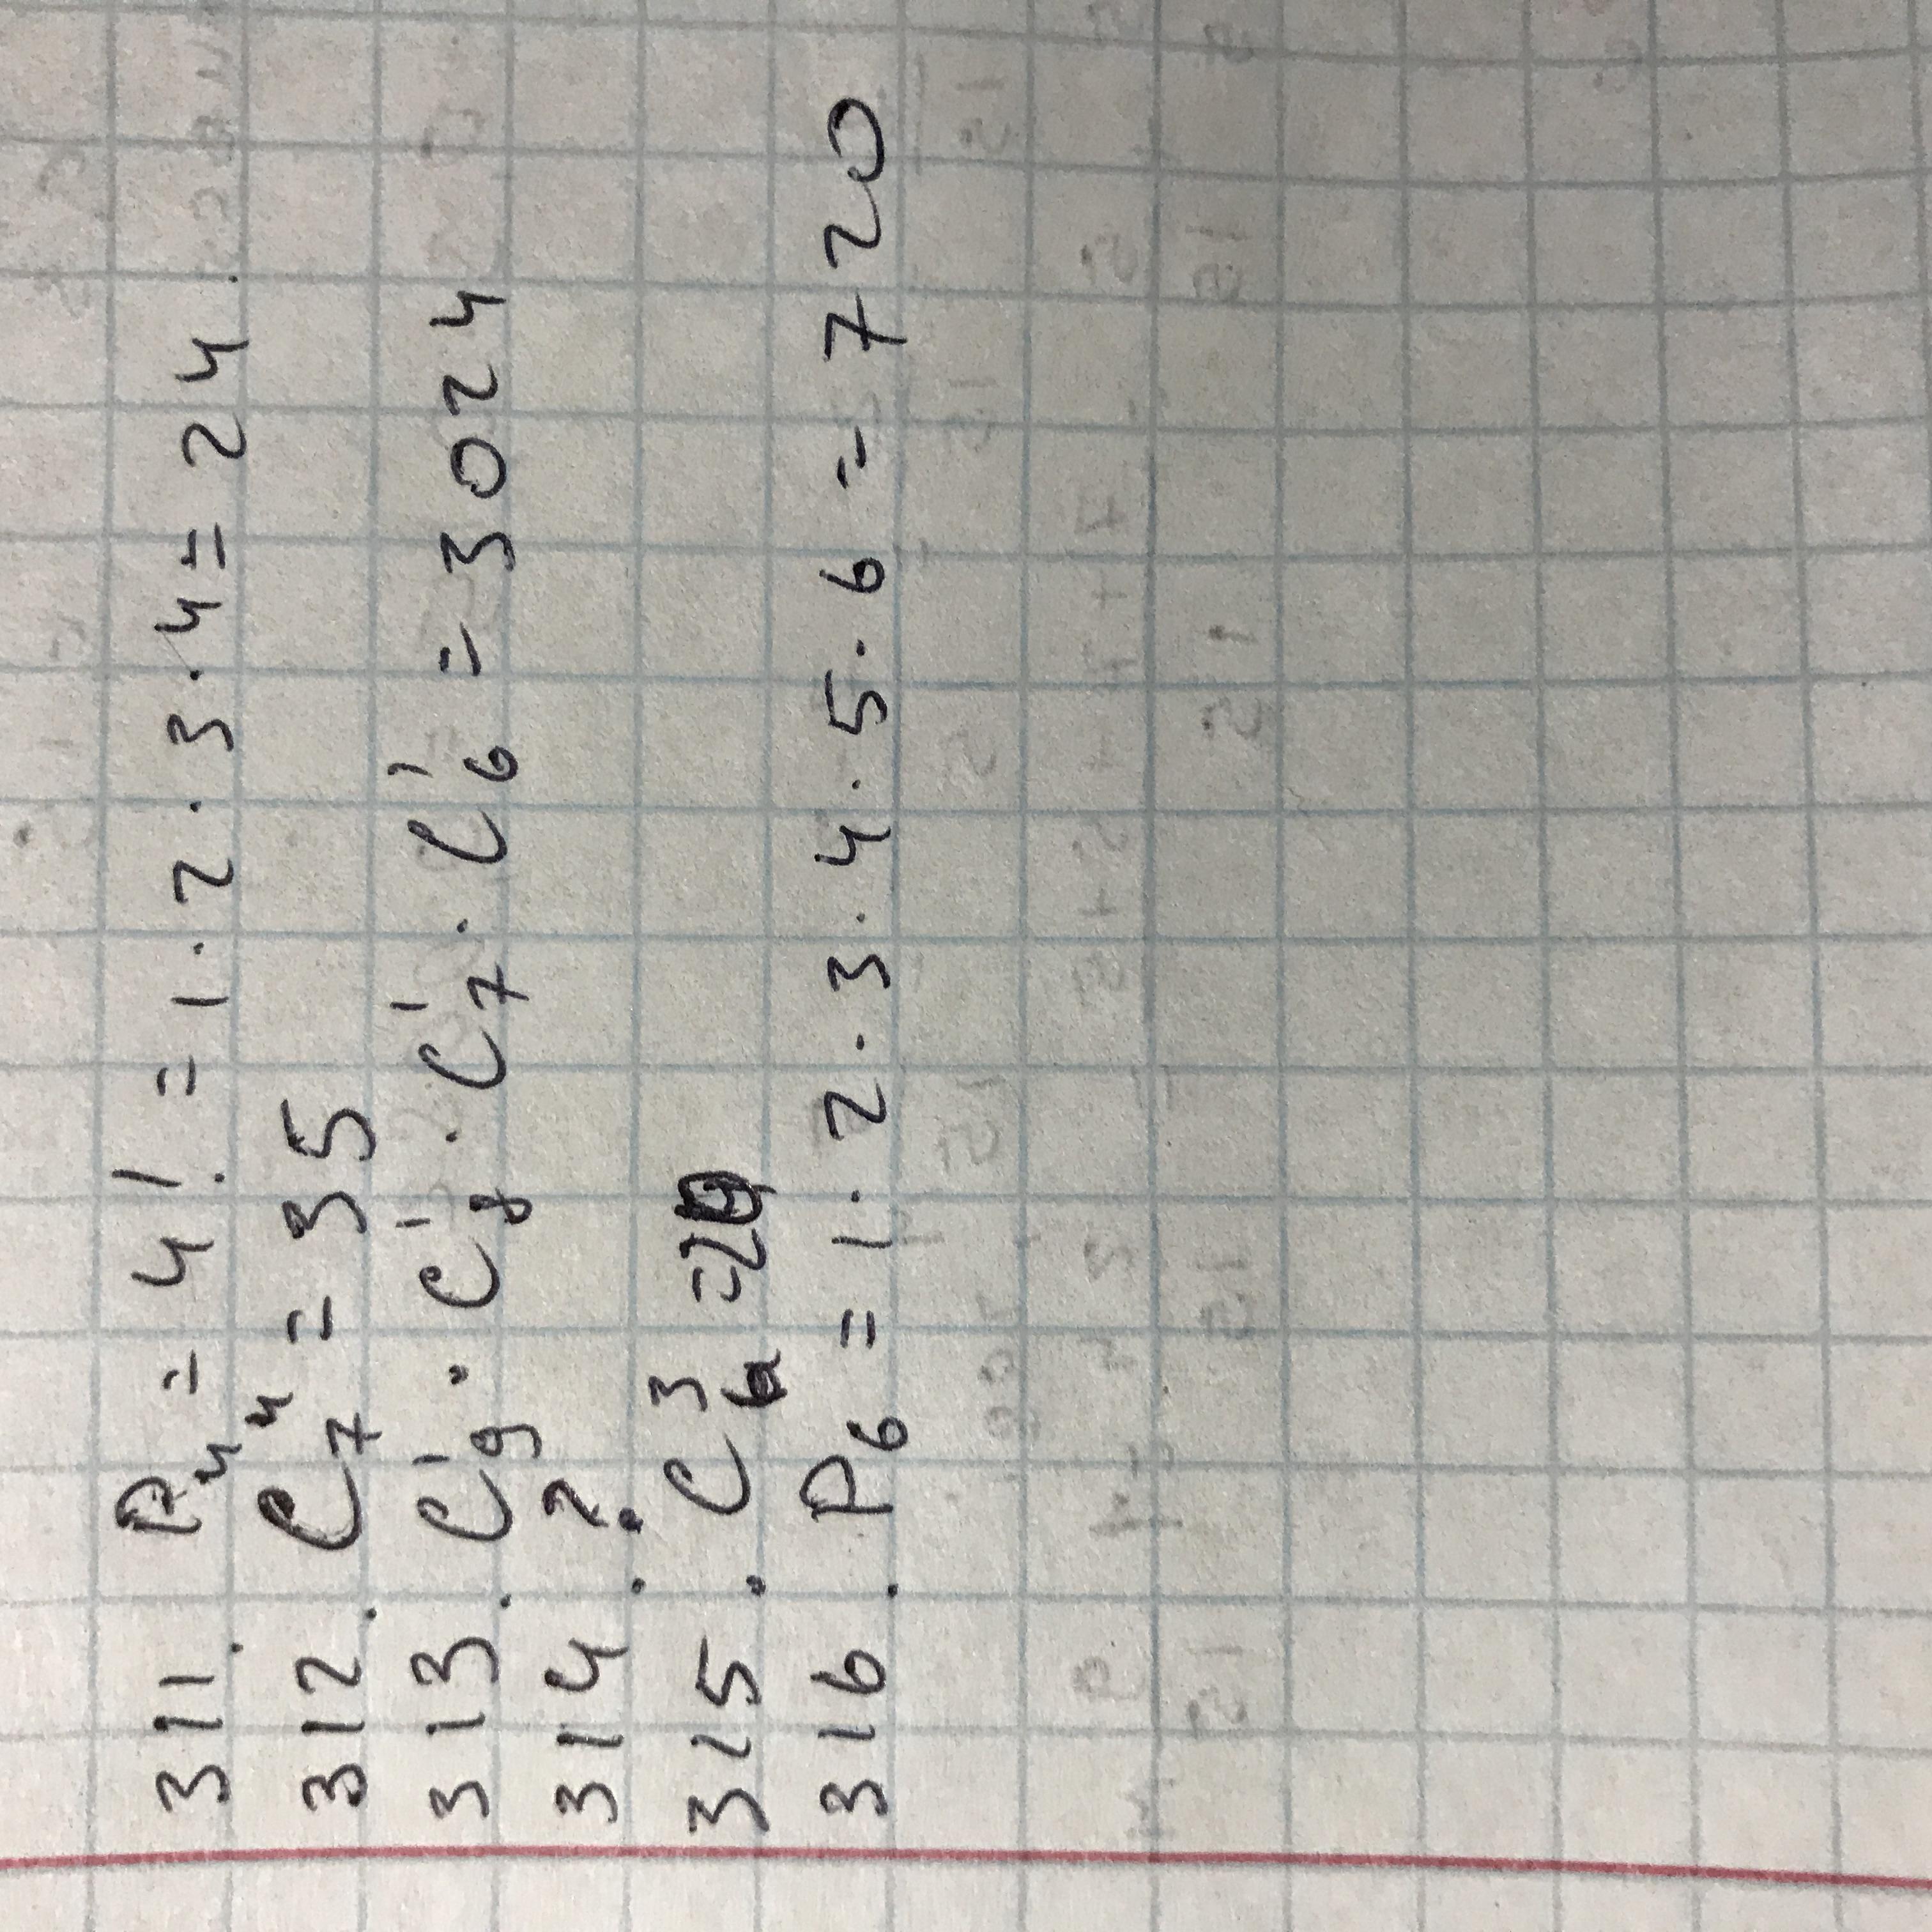 311. P₄ = 4! = 1·2·3·4 = 24.
312. C₇⁴ = 35
313. C₉¹ · C₈¹ · C₇¹ · C₆¹ = 3024
314. ?
315. C₆³ = 20
316. P₆ = 1·2·3·4·5·6 = 720